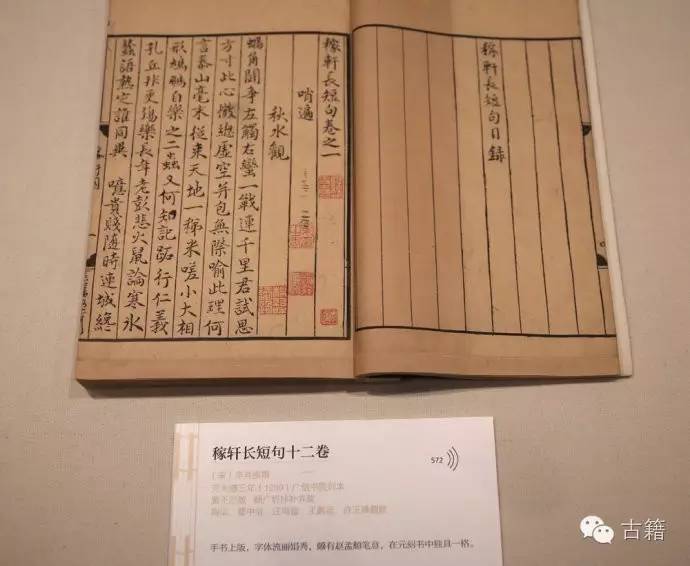 稼軒長短句目錄
稼軒長短句卷之一
哨遍
秋水觀
蝸角鬭爭左觸右蠻一戰連千里君試思
方寸此心微緫虛空并包無際喻此理何
言泰山毫末從來天地一稊米嗟小大相
形鳩鵬自樂之二蟲又何知記跖行仁義
孔丘非更殤樂長年老彭悲火鼠論寒冰
蠶語熱定誰同異 噫貴賤隨時連城纔
稼轩长短句十二卷
572
（宋）辛弃疾撰
元大德三年（1299）广信书院刻本
黄丕烈跋 顾广圻抄补并跋
手书上版，字体流丽娟秀，颇有赵孟頫笔意，在元刻书中独具一格。
古籍